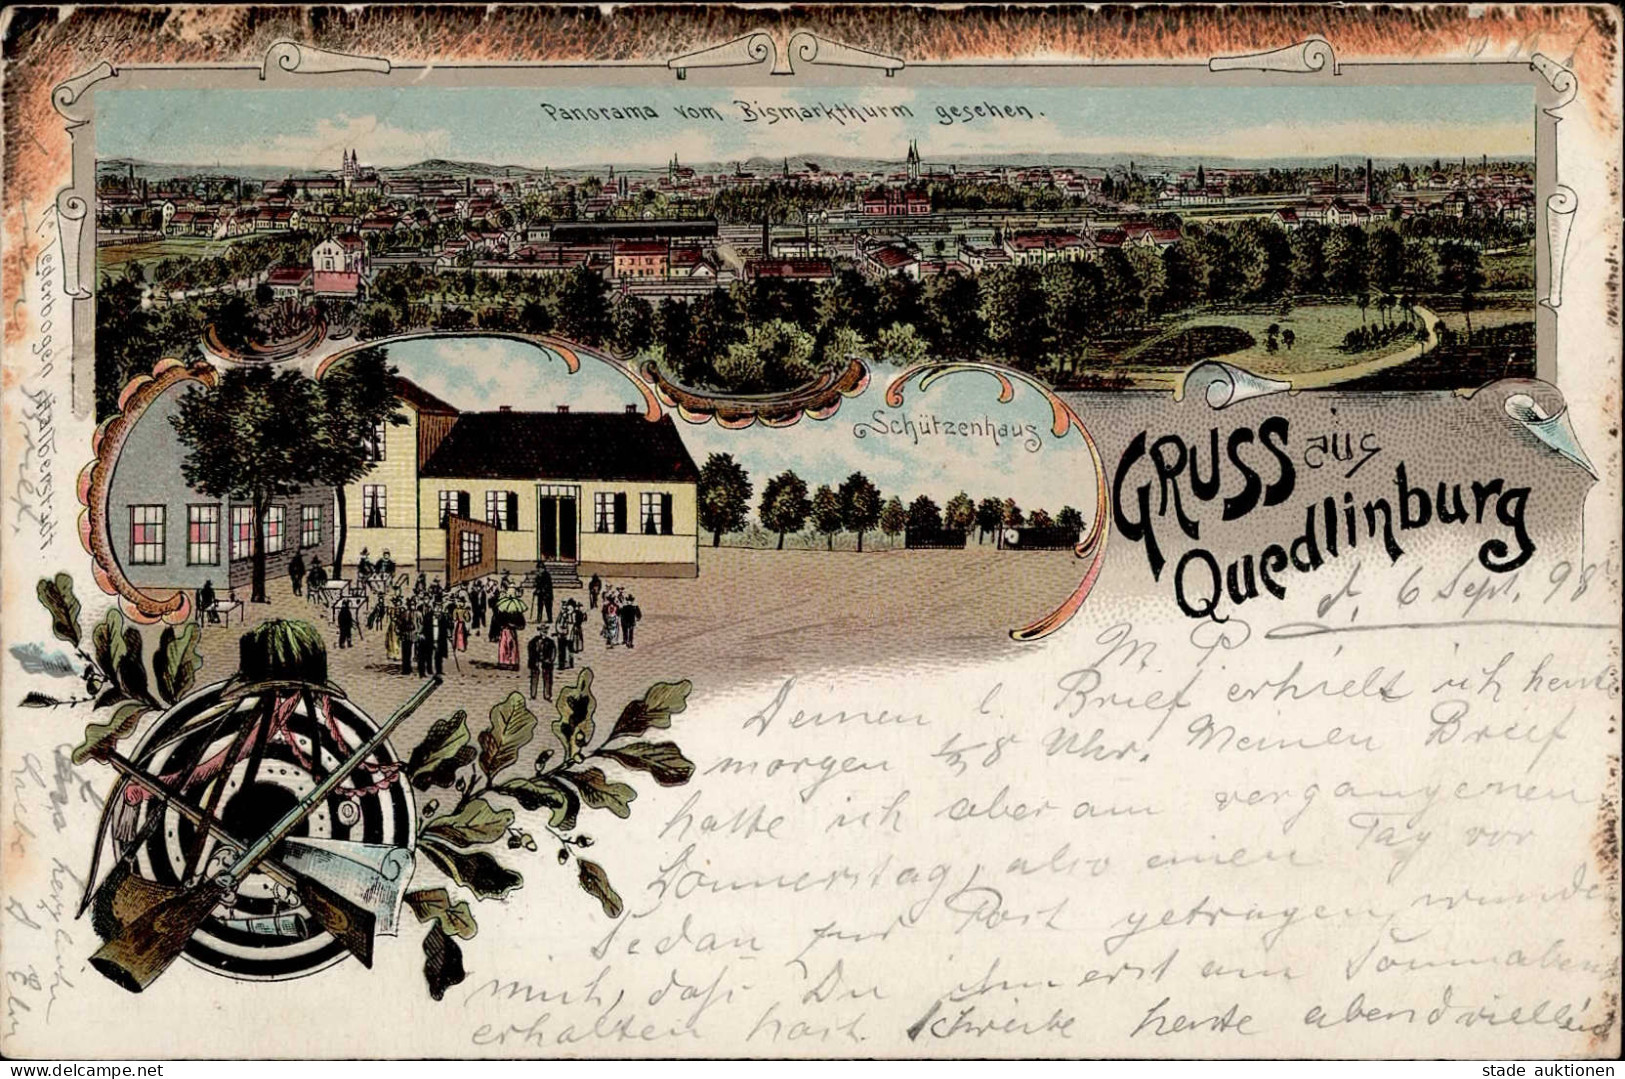 8254.
Panorama vom Bismarkthurm gesehen.
Schützenhaus
GRUSS aus
Quedlinburg
d. 6 Sept. 98
M. P
Deinen l. Brief erhielt ich heute
morgen ½8 Uhr. Meinen Brief
hatte ich aber am vergangenen
Donnerstag, also einen Tag vor
Sedan zur Post getragen, wundre
mich, daß Du ihn erst am Sonnabend
erhalten hast. Schreibe heute abend
Lederbogen Halberstadt.
herzlichen
delcampe.net
stade auktionen